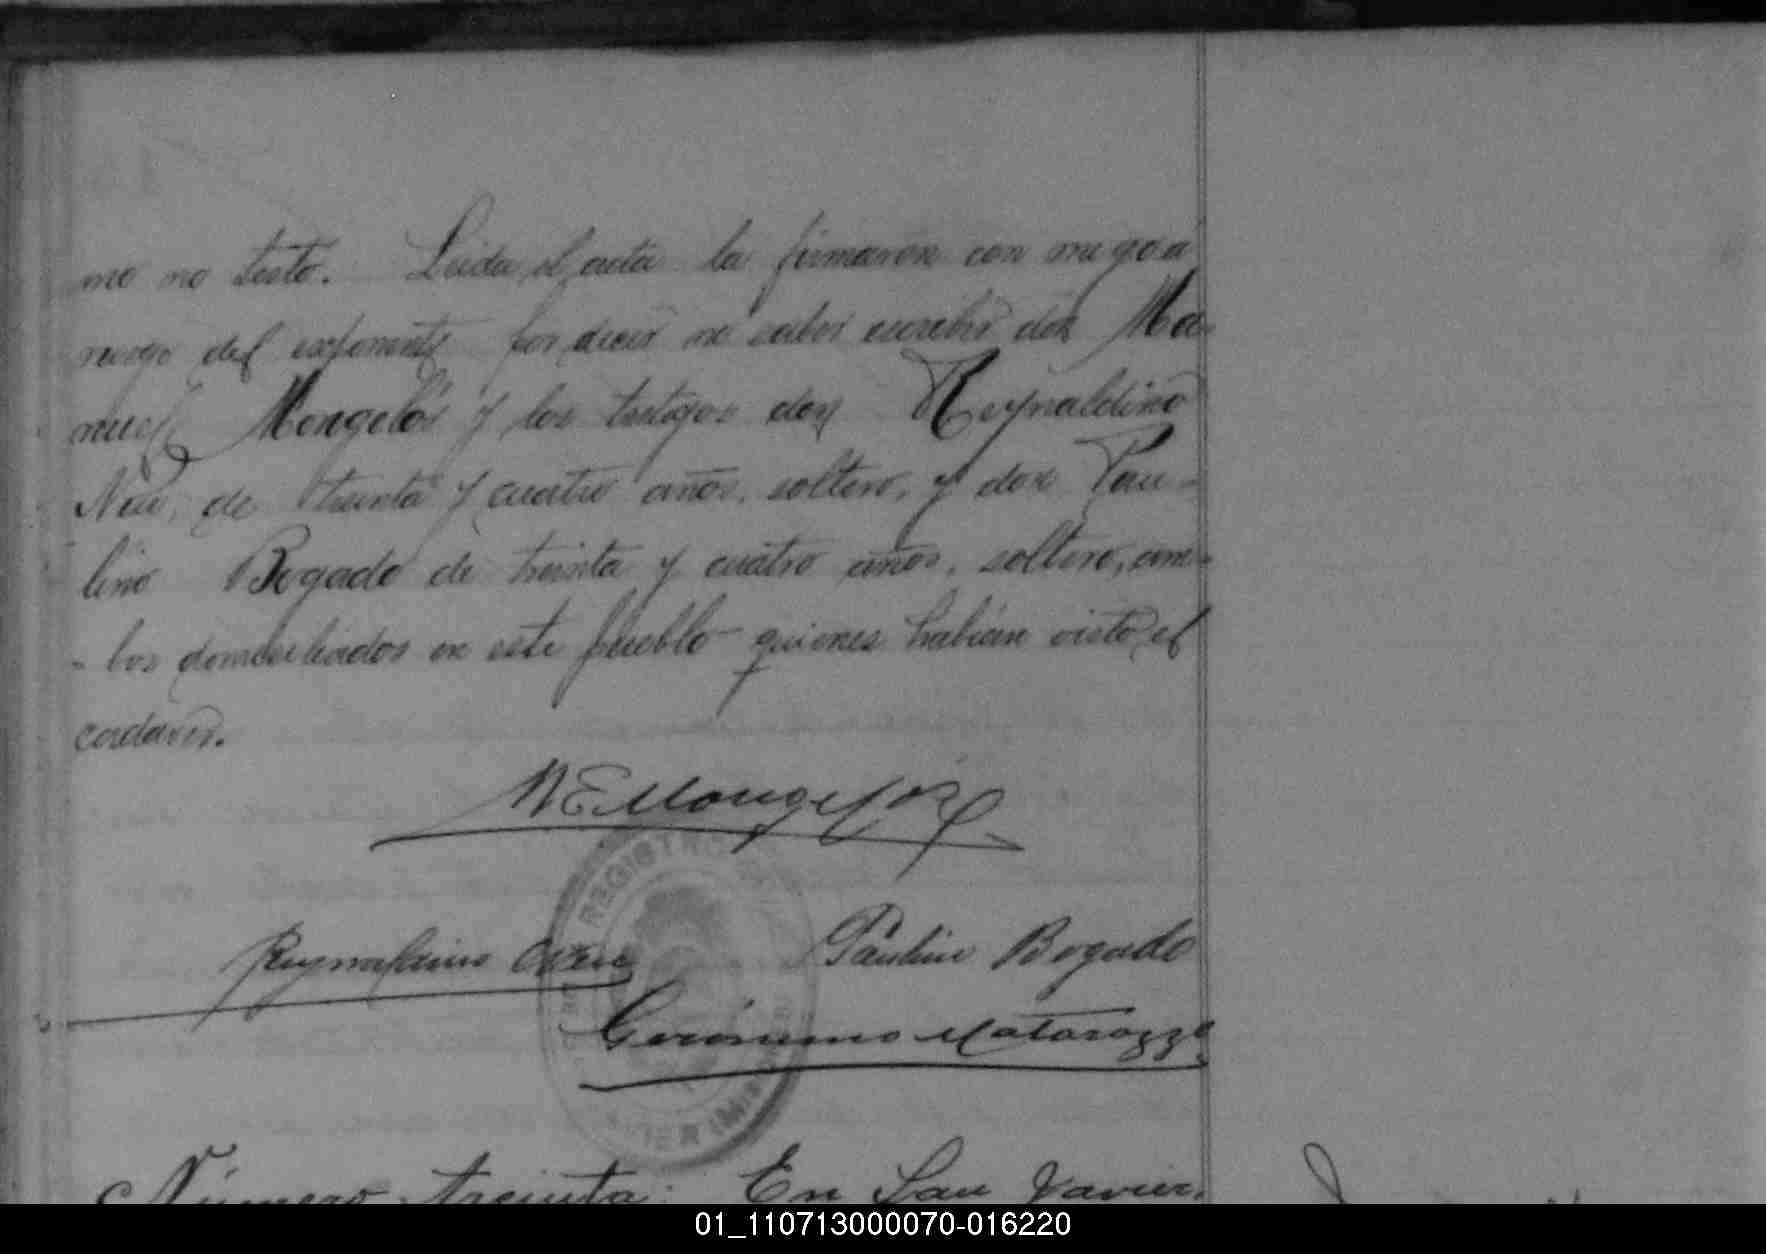 mo no testó. Leida el acta la firmaron con migo a
ruego del exponente por decir no saber escribir don Ma-
nuel Mongelós y los testigos don Reynaldino
de treinta y cuatro años, soltero, y don Pau-
lino Bogado de treinta y cuatro años, soltero, am-
- bos domiciliados en este pueblo quienes habian visto el
cadaver.
M E Mongelós
REGISTRO
Reynaldino
Paulino Bogado
Gerónimo Matarozzo
Número treinta: En San Javier,
01_110713000070-016220